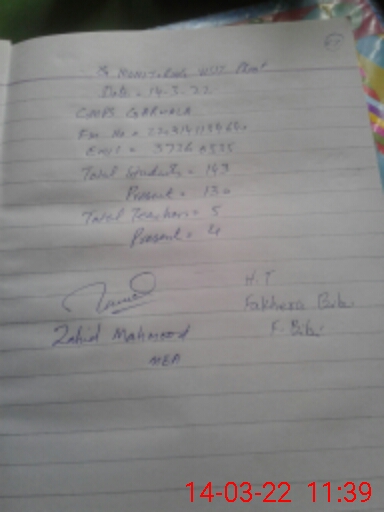 Monitoring Visit Proof
Date = 14-3-22
GMPS GARWALA
EMIS = 37260525
Total Students = 143
Present = 130
Total Teachers = 5
Present = 4
H.T
Fakhera Bibi
Zahid Mahmood
F. Bibi
MEA
14-03-22 11:39